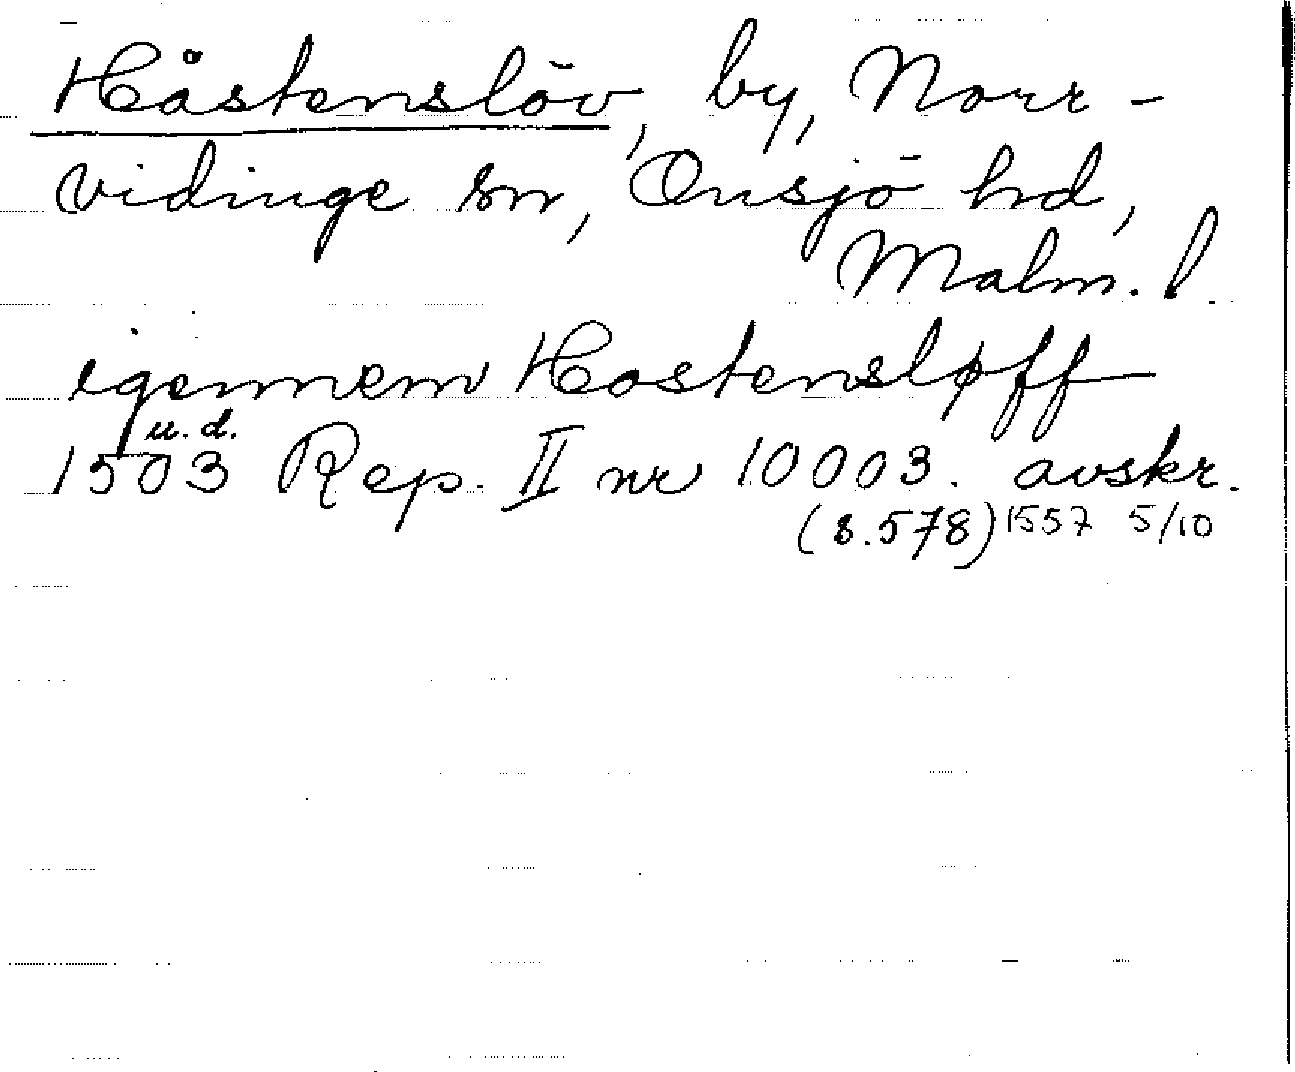 Håstenslöv, by, Norr-
vidinge sn, Onsjö hd,
Malm. l.
igennem Hostensløff
u. d.
1503 Rep. II nr 10003. avskr.
(s. 578) 1557 5/10